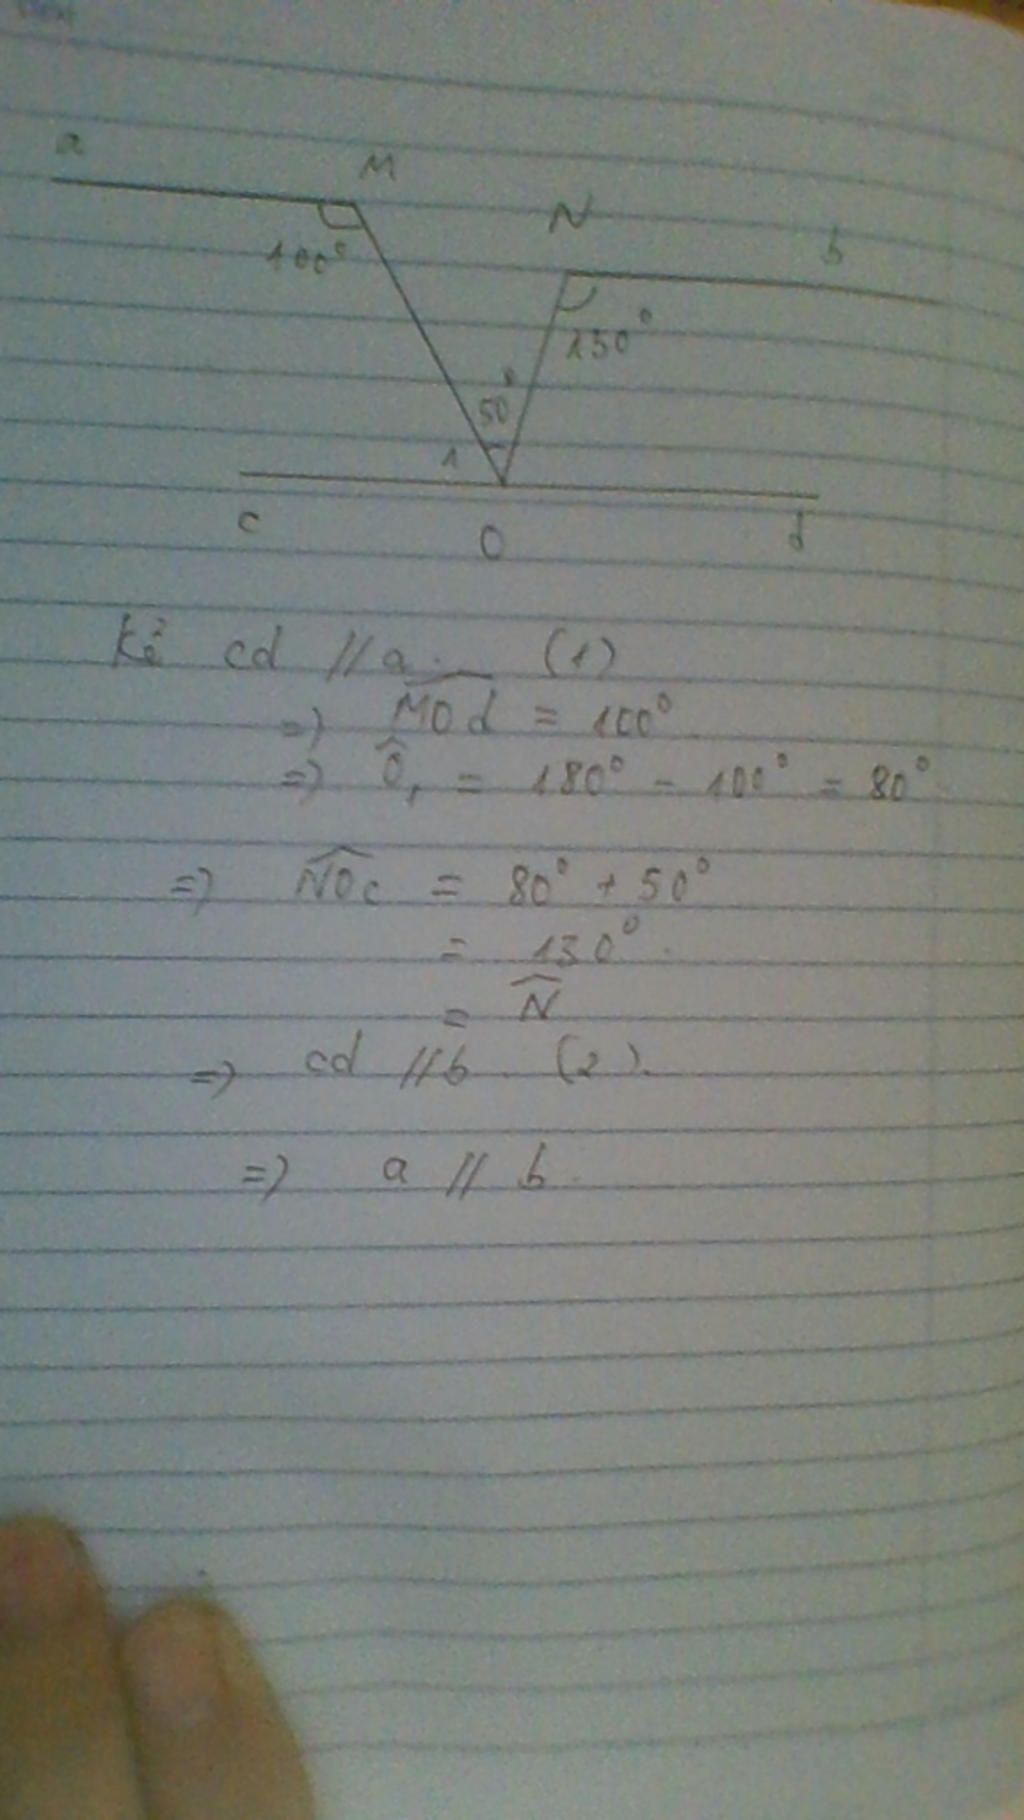 a
M
N
b
100°
130°
50°
1
c
O
d
Kẻ cd // a. (1)
=> MOd = 100°
=> Ô₁ = 180° - 100° = 80°
=> NOc = 80° + 50°
= 130°.
= N
=> cd // b. (2).
=> a // b.